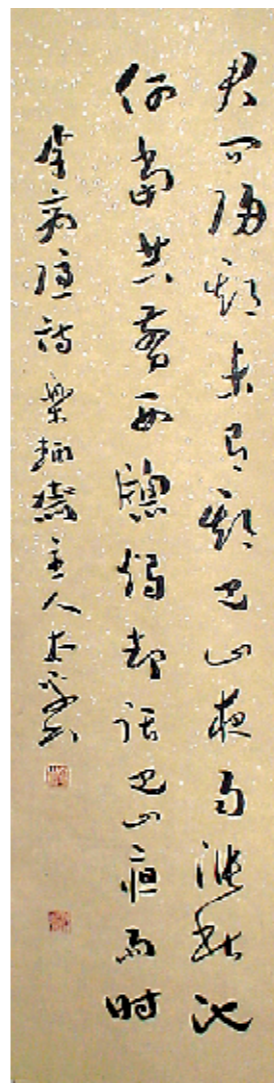 君问归期未有期巴山夜雨涨秋池
何当共剪西窗烛却话巴山夜雨时
李商隐诗 主人